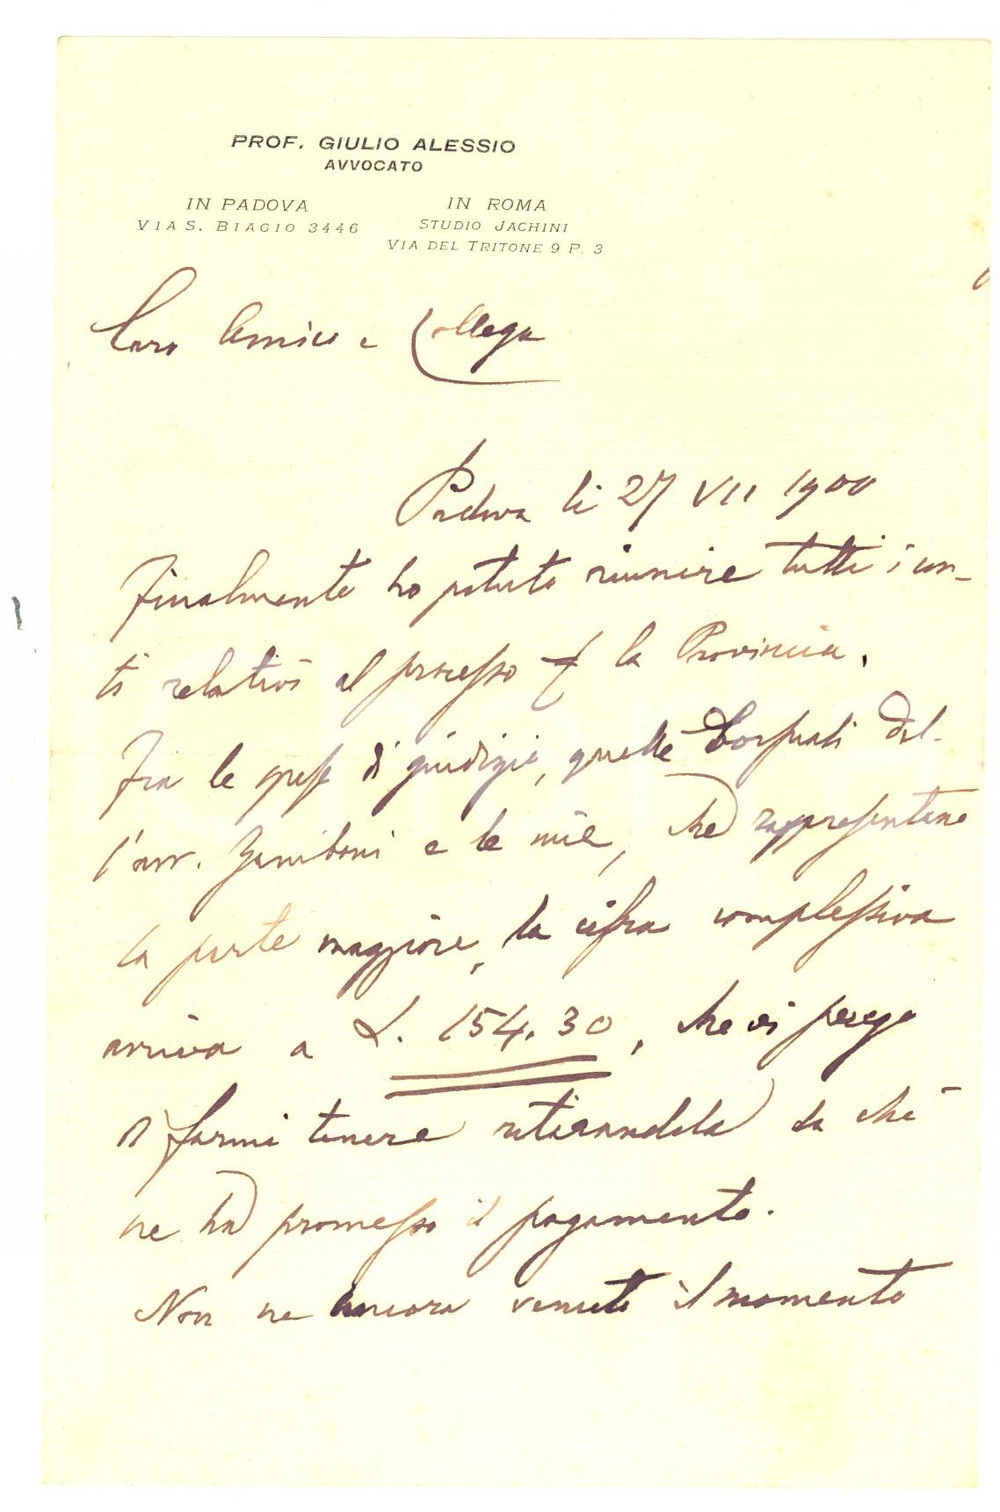 PROF. GIULIO ALESSIO
AVVOCATO
IN PADOVA
VIA S. BIAGIO 3446
IN ROMA
STUDIO JACHINI
VIA DEL TRITONE 9 P. 3
Caro Amico e Collega
Padova li 27 VII 1900
Finalmente ho potuto riunire tutti i con-
ti relativi al processo la Provincia.
Fra le spese di giudizio, quelle del-
l'avv. Zamboni e le mie, che rappresentano
la parte maggiore, la cifra complessiva
arriva a L. 154.30, che vi prego
a farmi tenere ritirandola da chi
ne ha promesso il pagamento.
Non ne ancora venuto il momento